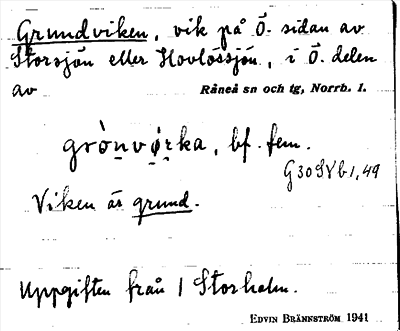 Grundviken, vik på Ö. sidan av
Storsjön eller Hovlössjön, i Ö. delen
av Råneå sn och tg, Norrb. l.
grò̤nvø̤rka, bf. fem.
G30SVb1,49
Viken är grund.
Uppgiften från I Storholm.
EDVIN BRÄNNSTRÖM 1941